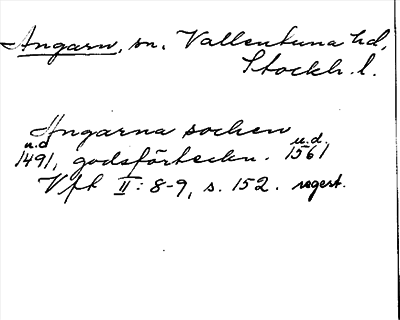 Angarn, sn, Vallentuna hd,
Stockh. l.
Angarna socken
u.d. 1491, godsförteckn. u.d. 1561
Vft II: 8-9, s. 152. regest.